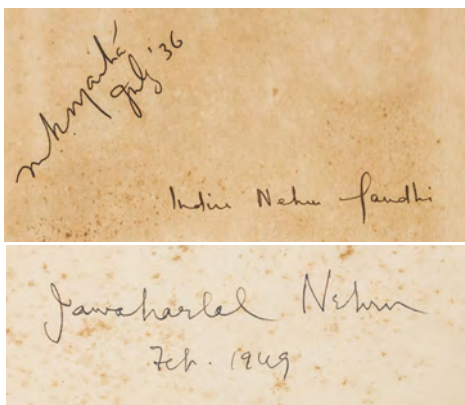 July '36
Indira Nehru Gandhi
Jawaharlal Nehru
Feb. 1949